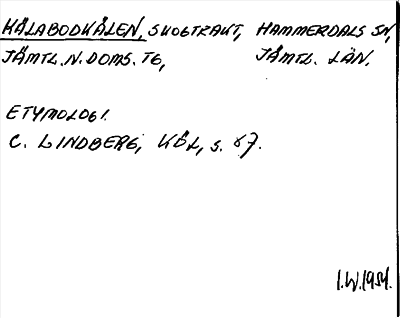 HÅLABODKÅLEN, SKOGTRAKT, HAMMERDALS SN,
JÄMTL. N. DOMS. TG, JÄMTL. LÄN.
ETYMOLOGI.
C. LINDBERG, KÖL, s. 87.
I.W. 1954.